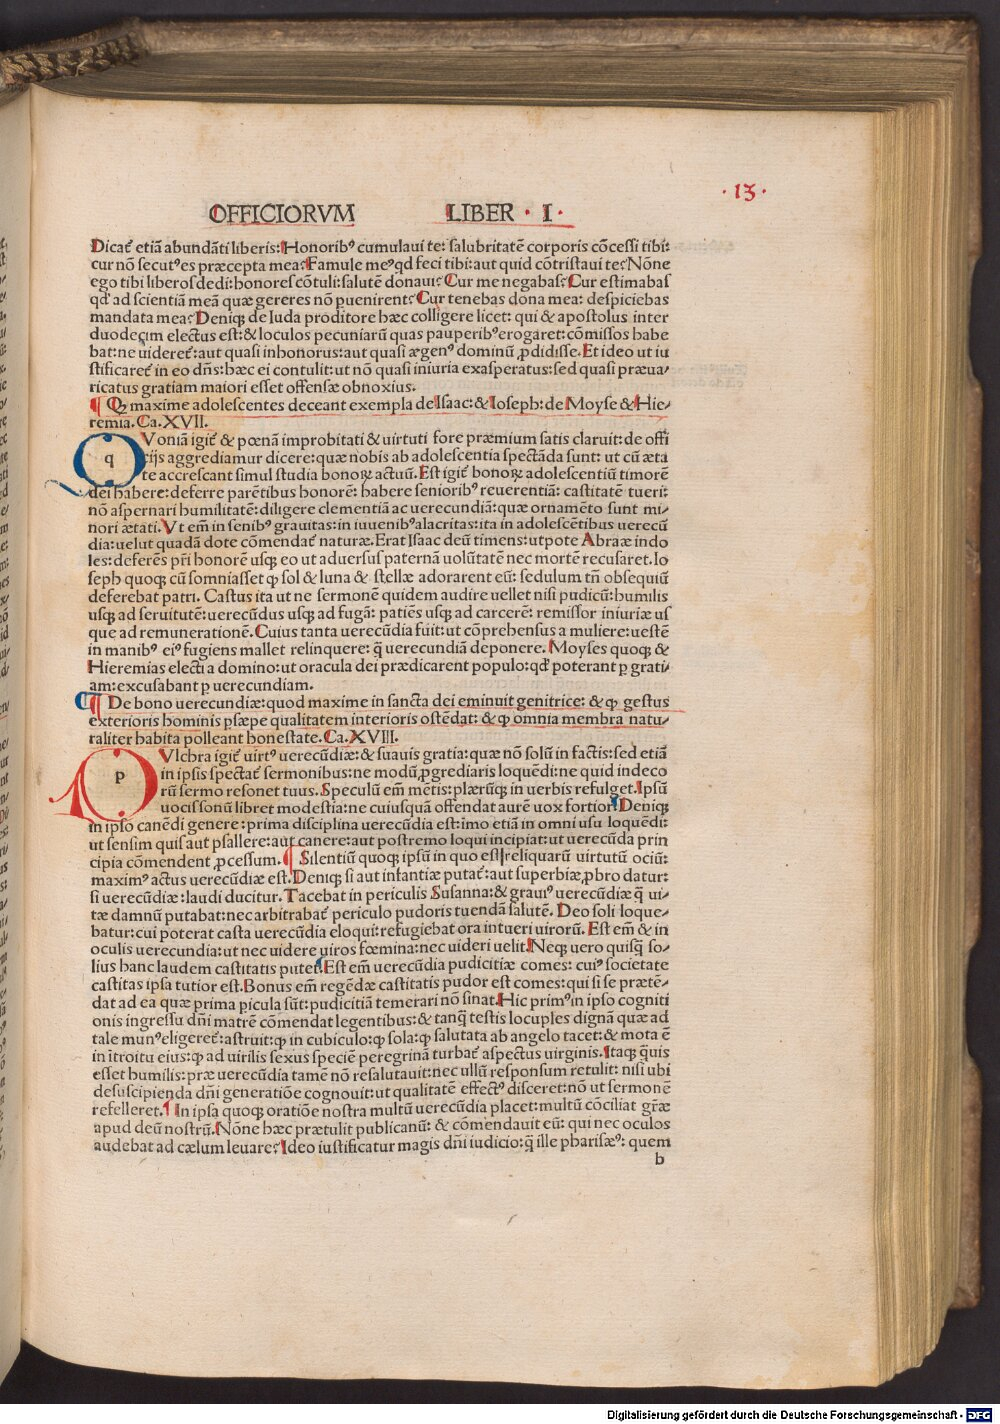 · 13 ·
OFFICIORVM LIBER · I ·
Dicat̃ etiã abundãti liberis: Honoribꝰ cumulaui te: salubritatẽ corporis cõcessi tibi:
cur nõ secutꝰes præcepta mea? Famule meꝰ qd feci tibi: aut quid cõtristaui te? Nõne
ego tibi liberos dedi: honores cõtuli: salutẽ donaui? Cur me negabas? Cur estimabas
qđ ad scientiã meã quæ gereres nõ puenirent? Cur tenebas dona mea: despiciebas
mandata mea? Deniqꝫ de Iuda proditore hæc colligere licet: qui & apostolus inter
duodecim electus est: & loculos pecuniarũ quas pauperibꝰ erogaret: cõmissos habe
bat: ne uideret̃: aut quasi inhonorus: aut quasi ægenꝰ dominũ ꝓdidisse. Et ideo ut iu
stificaret̃ in eo dñs: hæc ei contulit: ut nõ quasi iniuria exasperatus: sed quasi præua-
ricatus gratiam maiori esset offensæ obnoxius.
¶ Qꝫ maxime adolescentes deceant exempla de Isaac: & Ioseph: de Moyse & Hie-
remia. Ca. XVII.
q Voniã igit̃ & pœnã improbitati & uirtuti fore præmium satis claruit: de offi
cijs aggrediamur dicere: quæ nobis ab adolescentia spectãda sunt: ut cũ æta
te accrescant simul studia bonoꝝ actuũ. Est igit̃ bonoꝝ adolescentiũ timorẽ
dei habere: deferre parẽtibus honorẽ: habere senioribꝰ reuerentiã: castitatẽ tueri:
nõ aspernari humilitatẽ: diligere clementiã ac uerecundiã: quæ ornamẽto sunt mi-
nori ætati. Vt em̃ in senibꝰ grauitas: in iuuenibꝰ alacritas: ita in adolescẽtibus uerecũ
dia: uelut quadã dote cõmendat̃ naturæ. Erat Isaac deũ timens: utpote Abraæ indo
les: deferẽs pr̃i honorẽ usqꝫ eo ut aduersus paternã uolũtatẽ nec mortẽ recusaret. Io
seph quoqꝫ cũ somniasset ꝙ sol & luna & stellæ adorarent eũ: sedulum tñ obsequiũ
deferebat patri. Castus ita ut ne sermonẽ quidem audire uellet nisi pudicũ: humilis
usqꝫ ad seruitutẽ: uerecũdus usqꝫ ad fugã: patiẽs usqꝫ ad carcerẽ: remissor iniuriæ us
que ad remunerationẽ. Cuius tanta uerecũdia fuit: ut cõprehensus a muliere: uestẽ
in manibꝰ eiꝰ fugiens mallet relinquere: q̃ uerecundiã deponere. Moyses quoqꝫ &
Hieremias electi a domino: ut oracula dei prædicarent populo: qđ poterant ꝑ grati-
am: excusabant ꝑ uerecundiam.
¶ De bono uerecundiæ: quod maxime in sancta dei eminuit genitrice: & ꝙ gestus
exterioris hominis psæpe qualitatem interioris ostẽdat: & ꝙ omnia membra natu-
raliter habita polleant honestate. Ca. XVIII.
p Vlchra igit̃ uirtꝰ uerecũdiæ: & suauis gratia: quæ nõ solũ in factis: sed etiã
in ipsis spectat̃ sermonibus: ne modũ ꝓgrediaris loquẽdi: ne quid indeco
rũ sermo resonet tuus. Speculũ em̃ mẽtis: plærũqꝫ in verbis refulget. Ipsũ
uocis sonũ libret modestia: ne cuiusquã offendat aurẽ uox fortior. Deniqꝫ
in ipso canẽdi genere: prima disciplina uerecũdia est: imo etiã in omni usu loquẽdi:
ut sensim quis aut psallere: aut canere: aut postremo loqui incipiat: ut uerecũda prin
cipia cõmendent ꝓcessum. ¶ Silentiũ quoqꝫ ipsũ in quo est reliquarũ uirtutũ ociũ:
maximꝰ actus uerecũdiæ est. Deniqꝫ si aut infantiæ putat̃: aut superbiæ, ꝓbro datur:
si uerecũdiæ: laudi ducitur. Tacebat in periculis Susanna: & grauiꝰ uerecũdiæ q̃ ui-
tæ damnũ putabat: nec arbitrabat̃ periculo pudoris tuendã salutẽ. Deo soli loque-
batur: cui poterat casta uerecũdia eloqui: refugiebat ora intueri uirorũ. Est em̃ & in
oculis uerecundia: ut nec uidere uiros fœmina: nec uideri uelit. Neqꝫ uero quisq̃ so-
lius hanc laudem castitatis putet. Est em̃ uerecũdia pudicitiæ comes: cuiꝰ societate
castitas ipsa tutior est. Bonus em̃ regẽdæ castitatis pudor est comes: qui si se prætẽ-
dat ad ea quæ prima picula sũt: pudicitiã temerari nõ sinat. Hic primꝰ in ipso cogniti
onis ingressu dñi matrẽ cõmendat legentibus: & tanq̃ testis locuples dignã quæ ad
tale munꝰ eligeret̃: astruit: ꝙ in cubiculo: ꝙ sola: ꝙ salutata ab angelo tacet: & mota ẽ
in ĩtroitu eius: ꝙ ad uirilis sexus speciẽ peregrinã turbat̃ aspectus uirginis. Itaqꝫ q̃uis
esset humilis: præ uerecũdia tamẽ nõ resalutauit: nec ullũ responsum retulit: nisi ubi
de suscipienda dñi generatiõe cognouit: ut qualitatẽ effectꝰ disceret: nõ ut sermonẽ
refelleret. ¶ In ipsa quoqꝫ oratiõe nostra multũ uerecũdia placet: multũ cõciliat gr̃æ
apud deũ nostrũ. Nõne hæc prætulit publicanũ: & cõmendauit eũ: qui nec oculos
audebat ad cælum leuare? Ideo iustificatur magis dñi iudicio: q̃ ille pharisæꝰ: quem
b
Digitalisierung gefördert durch die Deutsche Forschungsgemeinschaft - DFG